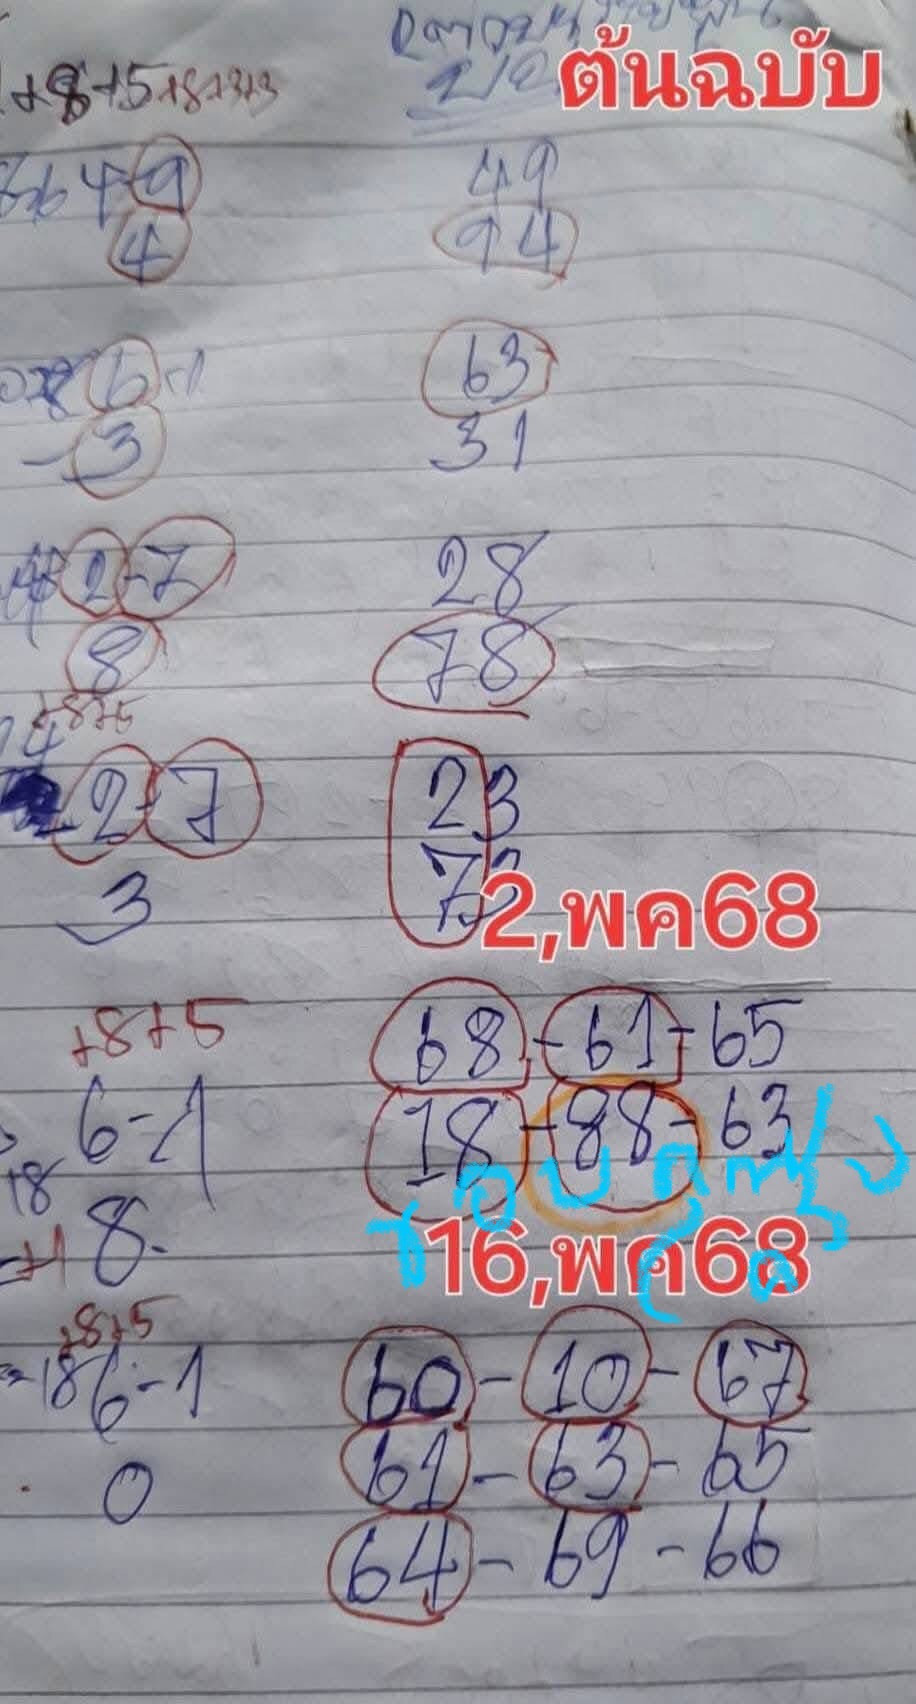 ต้นฉบับ
+8+5+8+3+3
4-9 49
4 94
6-1 63
3 31
2-7 28
8 78
+8+5
2-7 23
3 73
2,พค68
+8+5
68-61-65
6-1
18-88-63
18
8-
16,พค68
+8+5
186-1 60-10-67
61-63-65
0
64-69-66